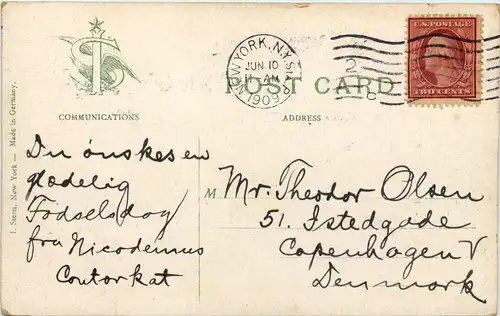 U.S. POSTAGE
TWO CENTS
NEW YORK, N.Y. STA.
JUN 10
11-AM
1909
POST CARD
COMMUNICATIONS
ADDRESS
I. Stern, New York — Made in Germany.
Du ønskes en
glædelig
Fødselsdag
fra Nicodemus
Contorkat
M Mr. Theodor Olsen
51. Istedgade
Copenhagen V
Denmark